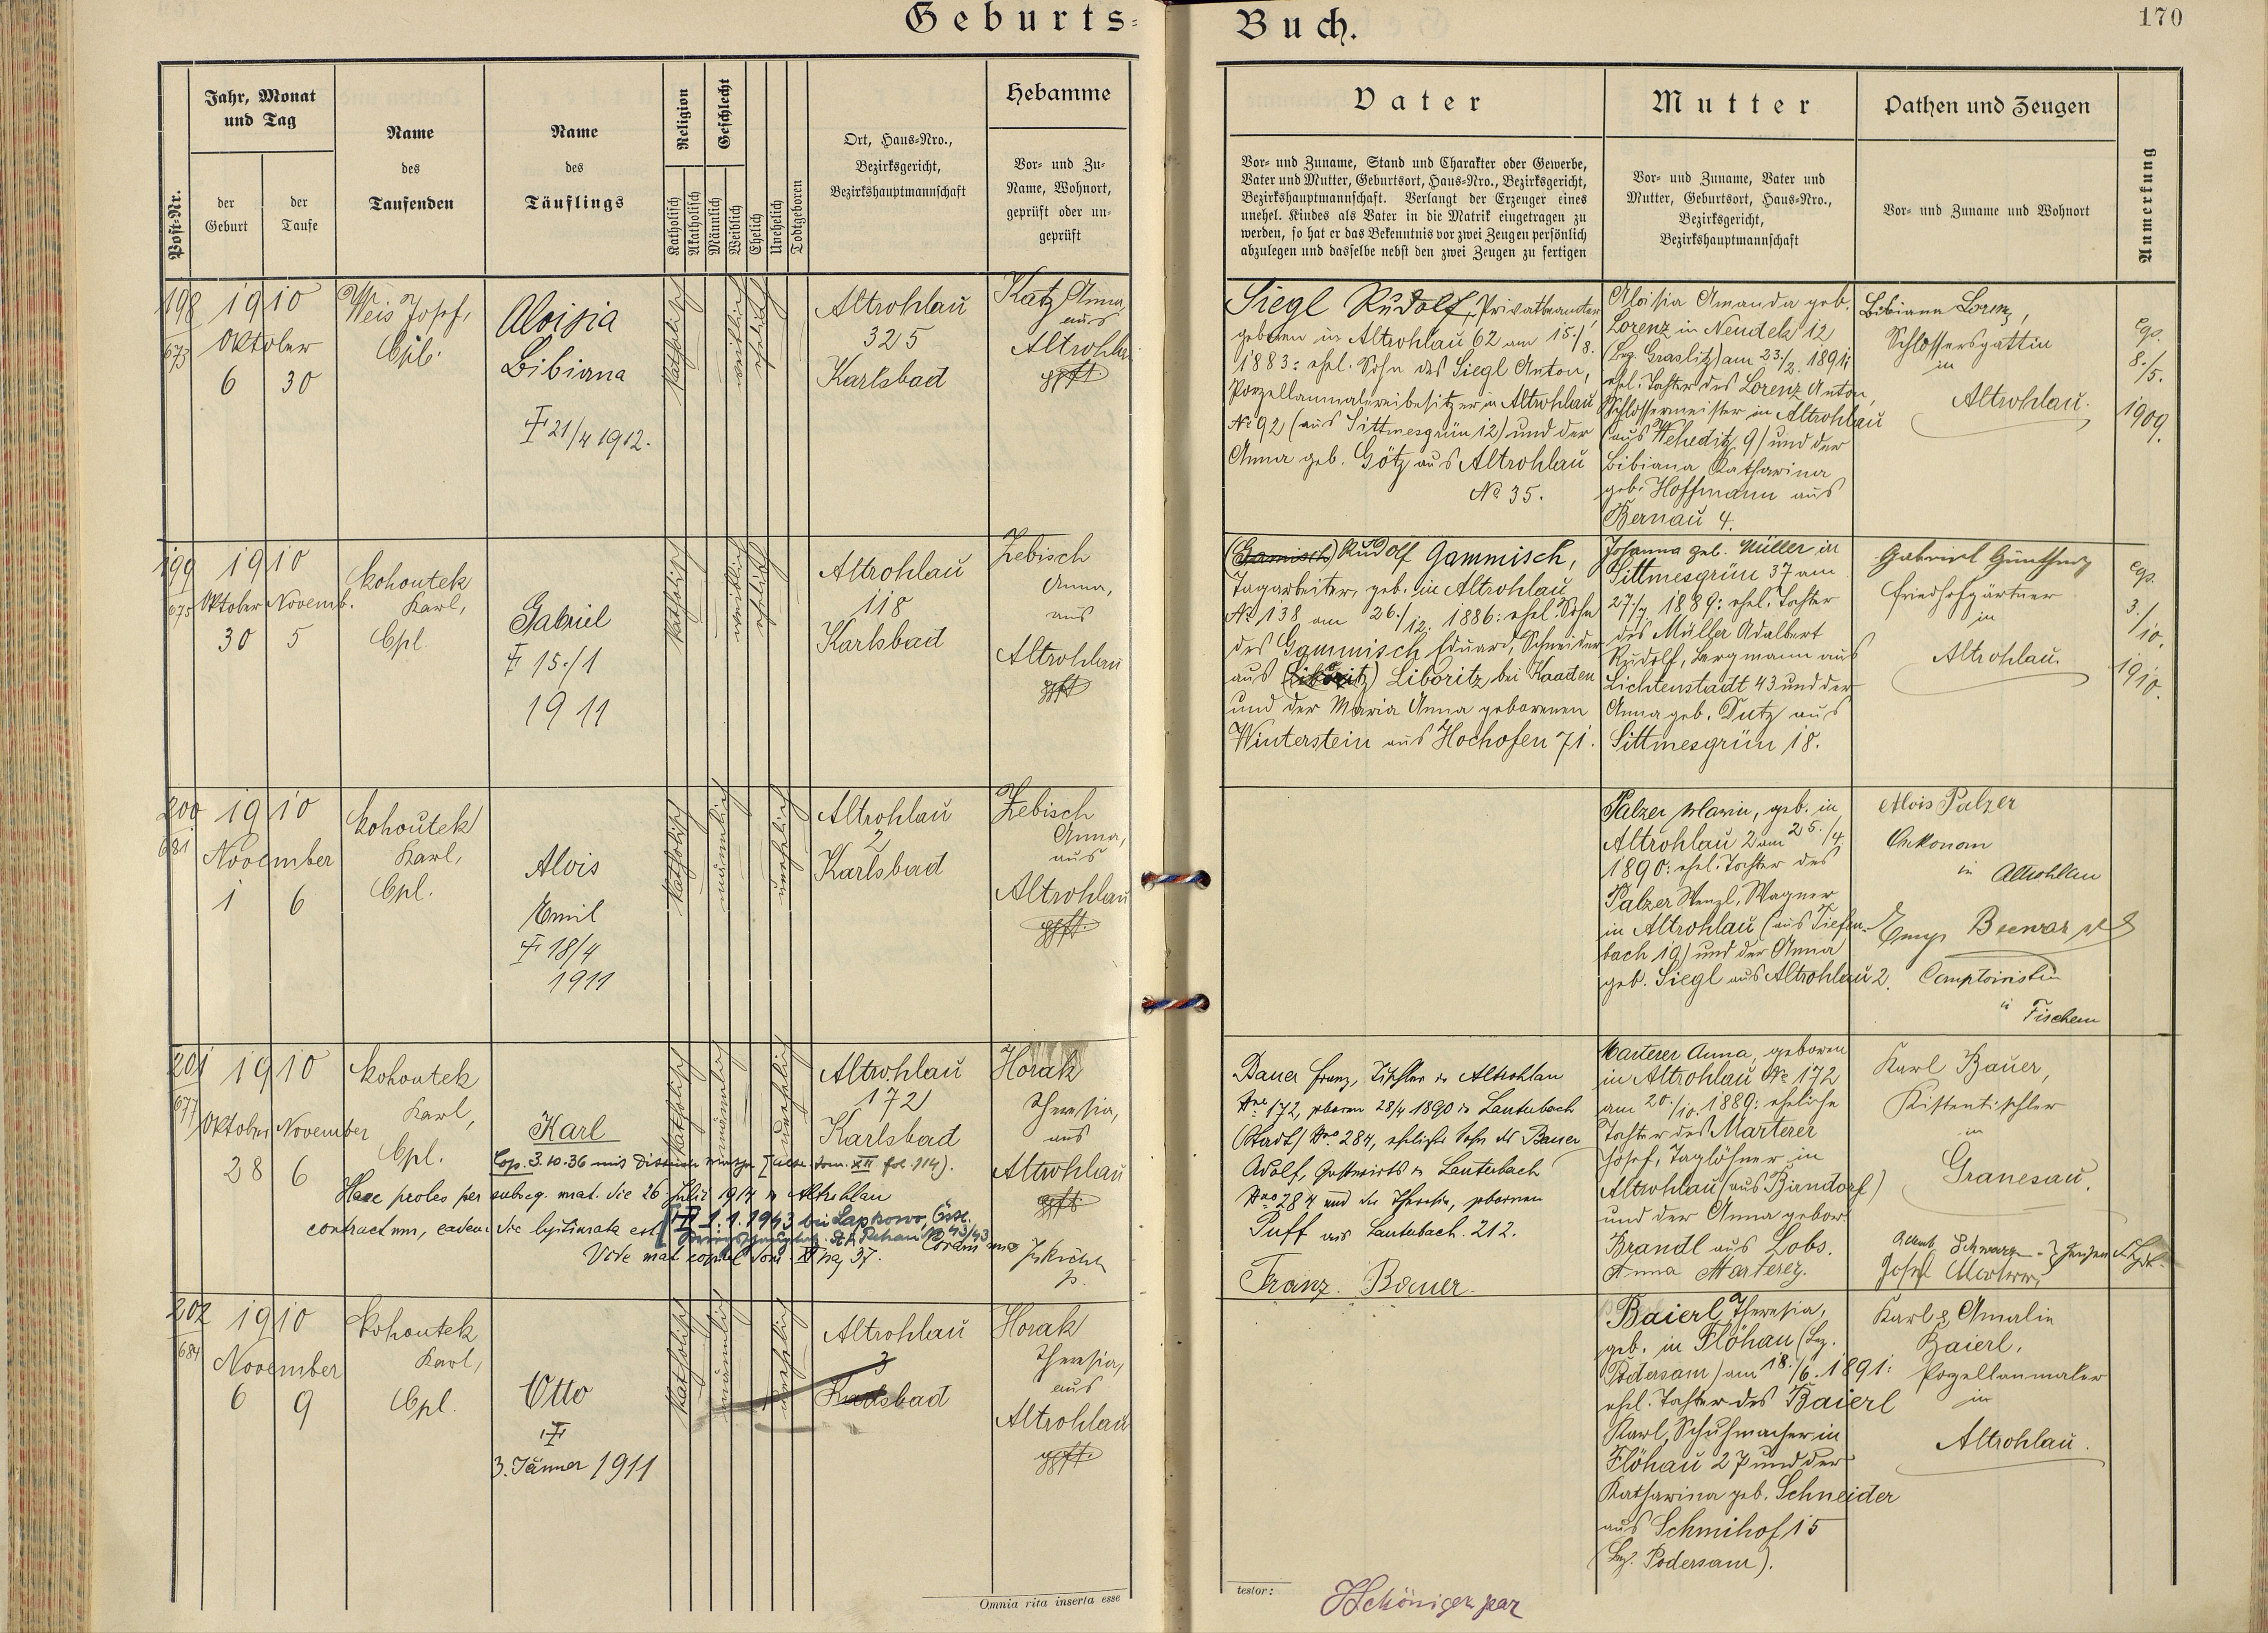 Geburts-
Buch.
170
Post-Nr.
Jahr, Monat
und Tag
der
Geburt
der
Taufe
Name
des
Taufenden
Name
des
Täuflings
Religion
Katholisch
Akatholisch
Geschlecht
Männlich
Weiblich
Ehelich
Unehelich
Todtgeboren
Ort, Haus-Nro.,
Bezirksgericht,
Bezirkshauptmannschaft
Hebamme
Vor- und Zu-
Name, Wohnort,
geprüft oder un-
geprüft
Vater
Vor- und Zuname, Stand und Charakter oder Gewerbe,
Vater und Mutter, Geburtsort, Haus-Nro., Bezirksgericht,
Bezirkshauptmannschaft. Verlangt der Erzeuger eines
unehel. Kindes als Vater in die Matrik eingetragen zu
werden, so hat er das Bekenntnis vor zwei Zeugen persönlich
abzulegen und dasselbe nebst den zwei Zeugen zu fertigen
Mutter
Vor- und Zuname, Vater und
Mutter, Geburtsort, Haus-Nro.,
Bezirksgericht,
Bezirkshauptmannschaft
Pathen und Zeugen
Vor- und Zuname und Wohnort
Anmerkung
198
673
1910
Oktober
6 30
Weis Josef,
Cpl.
Aloisia
Bibiana
† 21/4 1912.
katholisch
weiblich
ehelich
Altrohlau
325
Karlsbad
Katz Anna,
aus
Altrohlau
gpft.
Siegl Rudolf, Privatbeamter,
geboren in Altrohlau 62 am 15./8.
1883: ehel. Sohn des Siegl Anton,
Porzellanmalereibesitzer in Altrohlau
No 92 (aus Sittmesgrün 12) und der
Anna geb. Götz aus Altrohlau
No 35.
Aloisia Amanda geb.
Lorenz in Neudek 12
(Bez. Graslitz) am 23./2. 1891:
ehel. Tochter des Lorenz Anton,
Schlossermeister in Altrohlau
(aus Weheditz 9) und der
Bibiana Katharina
geb. Hoffmann aus
Bernau 4.
Bibiana Lorenz,
Schlossersgattin
in
Altrohlau.
cop.
8./5.
1909.
199
675
1910
Oktober Novemb.
30 5
Kohoutek
Karl,
Cpl.
Gabriel
† 15./1
1911
katholisch
weiblich
ehelich
Altrohlau
118
Karlsbad
Zebisch
Anna,
aus
Altrohlau
gpft.
(Gamisch) Rudolf Gammisch,
Tagarbeiter, geb. in Altrohlau
No 138 am 26./12. 1886: ehel. Sohn
des Gammisch Eduard, Schneider
aus Liboritz bei Kaaden
und der Maria Anna geborenen
Winterstein aus Hochofen 71.
Johanna geb. Müller in
Sittmesgrün 37 am
27./7 1889: ehel. Tochter
des Müller Adalbert
Rudolf, Bergmann aus
Lichtenstadt 43 und der
Anna geb. Dutz aus
Sittmesgrün 18.
Gabriel Günther,
Friedhofgärtner
in
Altrohlau.
cop.
3./10.
1910.
200
681
1910
November
1 6
Kohoutek
Karl,
Cpl.
Alois
Emil
† 18/4
1911
katholisch
männlich
unehelich
Altrohlau
2
Karlsbad
Zebisch
Anna,
aus
Altrohlau
gpft.
Palzer Maria, geb. in
Altrohlau 2 am 25./4.
1890: ehel. Tochter des
Palzer Wenzl, Wagner
in Altrohlau (aus Tiefen-
bach 19) und der Anna
geb. Siegl aus Altrohlau 2.
Alois Palzer
Oekonom
in Altrohlau
Comptoiristin
in Fischern
201
677
1910
Oktober November
28 6
Kohoutek
Karl,
Cpl.
Karl
katholisch
männlich
unehelich
Altrohlau
172
Karlsbad
Horak
Theresia,
aus
Altrohlau
gpft.
Haec proles per subseq. mat. die 26 Julii 1914 in Altrohlau
contractum, eadem die legitimata est
† 1.1.1943 bei Lapkowo,
Vide mat. copul. tom. pag 37.
Coram me
Bauer Franz, Tischler in Altrohlau
Nro 172, geboren 28/4 1890 in Lauterbach
(Stadt) Nro 284, ehelicher Sohn des Bauer
Adolf, Gastwirts in Lauterbach
Nro 284 und der Theresia, geborenen
Puff aus Lauterbach 212.
Franz Bauer
Marterer Anna, geboren
in Altrohlau No 172
am 20./10. 1889: eheliche
Tochter des Marterer
Josef, Taglöhner in
Altrohlau (aus Birndorf)
und der Anna gebor.
Brandl aus Lobs.
Anna Marterer.
Karl Bauer,
Kistentischler
in
Granesau.
Josef Marterer
Zeugen
202
684
1910
November
6 9
Kohoutek
Karl,
Cpl.
Otto
†
3. Jänner 1911
katholisch
männlich
unehelich
Altrohlau
3
Karlsbad
Horak
Theresia,
aus
Altrohlau
gpft.
Baierl Theresia,
geb. in Flöhau (Bez.
Podersam) am 18./6. 1891:
ehel. Tochter des Baierl
Karl, Schuhmacher in
Flöhau 27 und der
Katharina geb. Schneider
aus Schmihof 15
(Bez. Podersam).
Karl & Amalia
Baierl,
Porzellanmaler
in
Altrohlau.
Omnia rita inserta esse
testor: